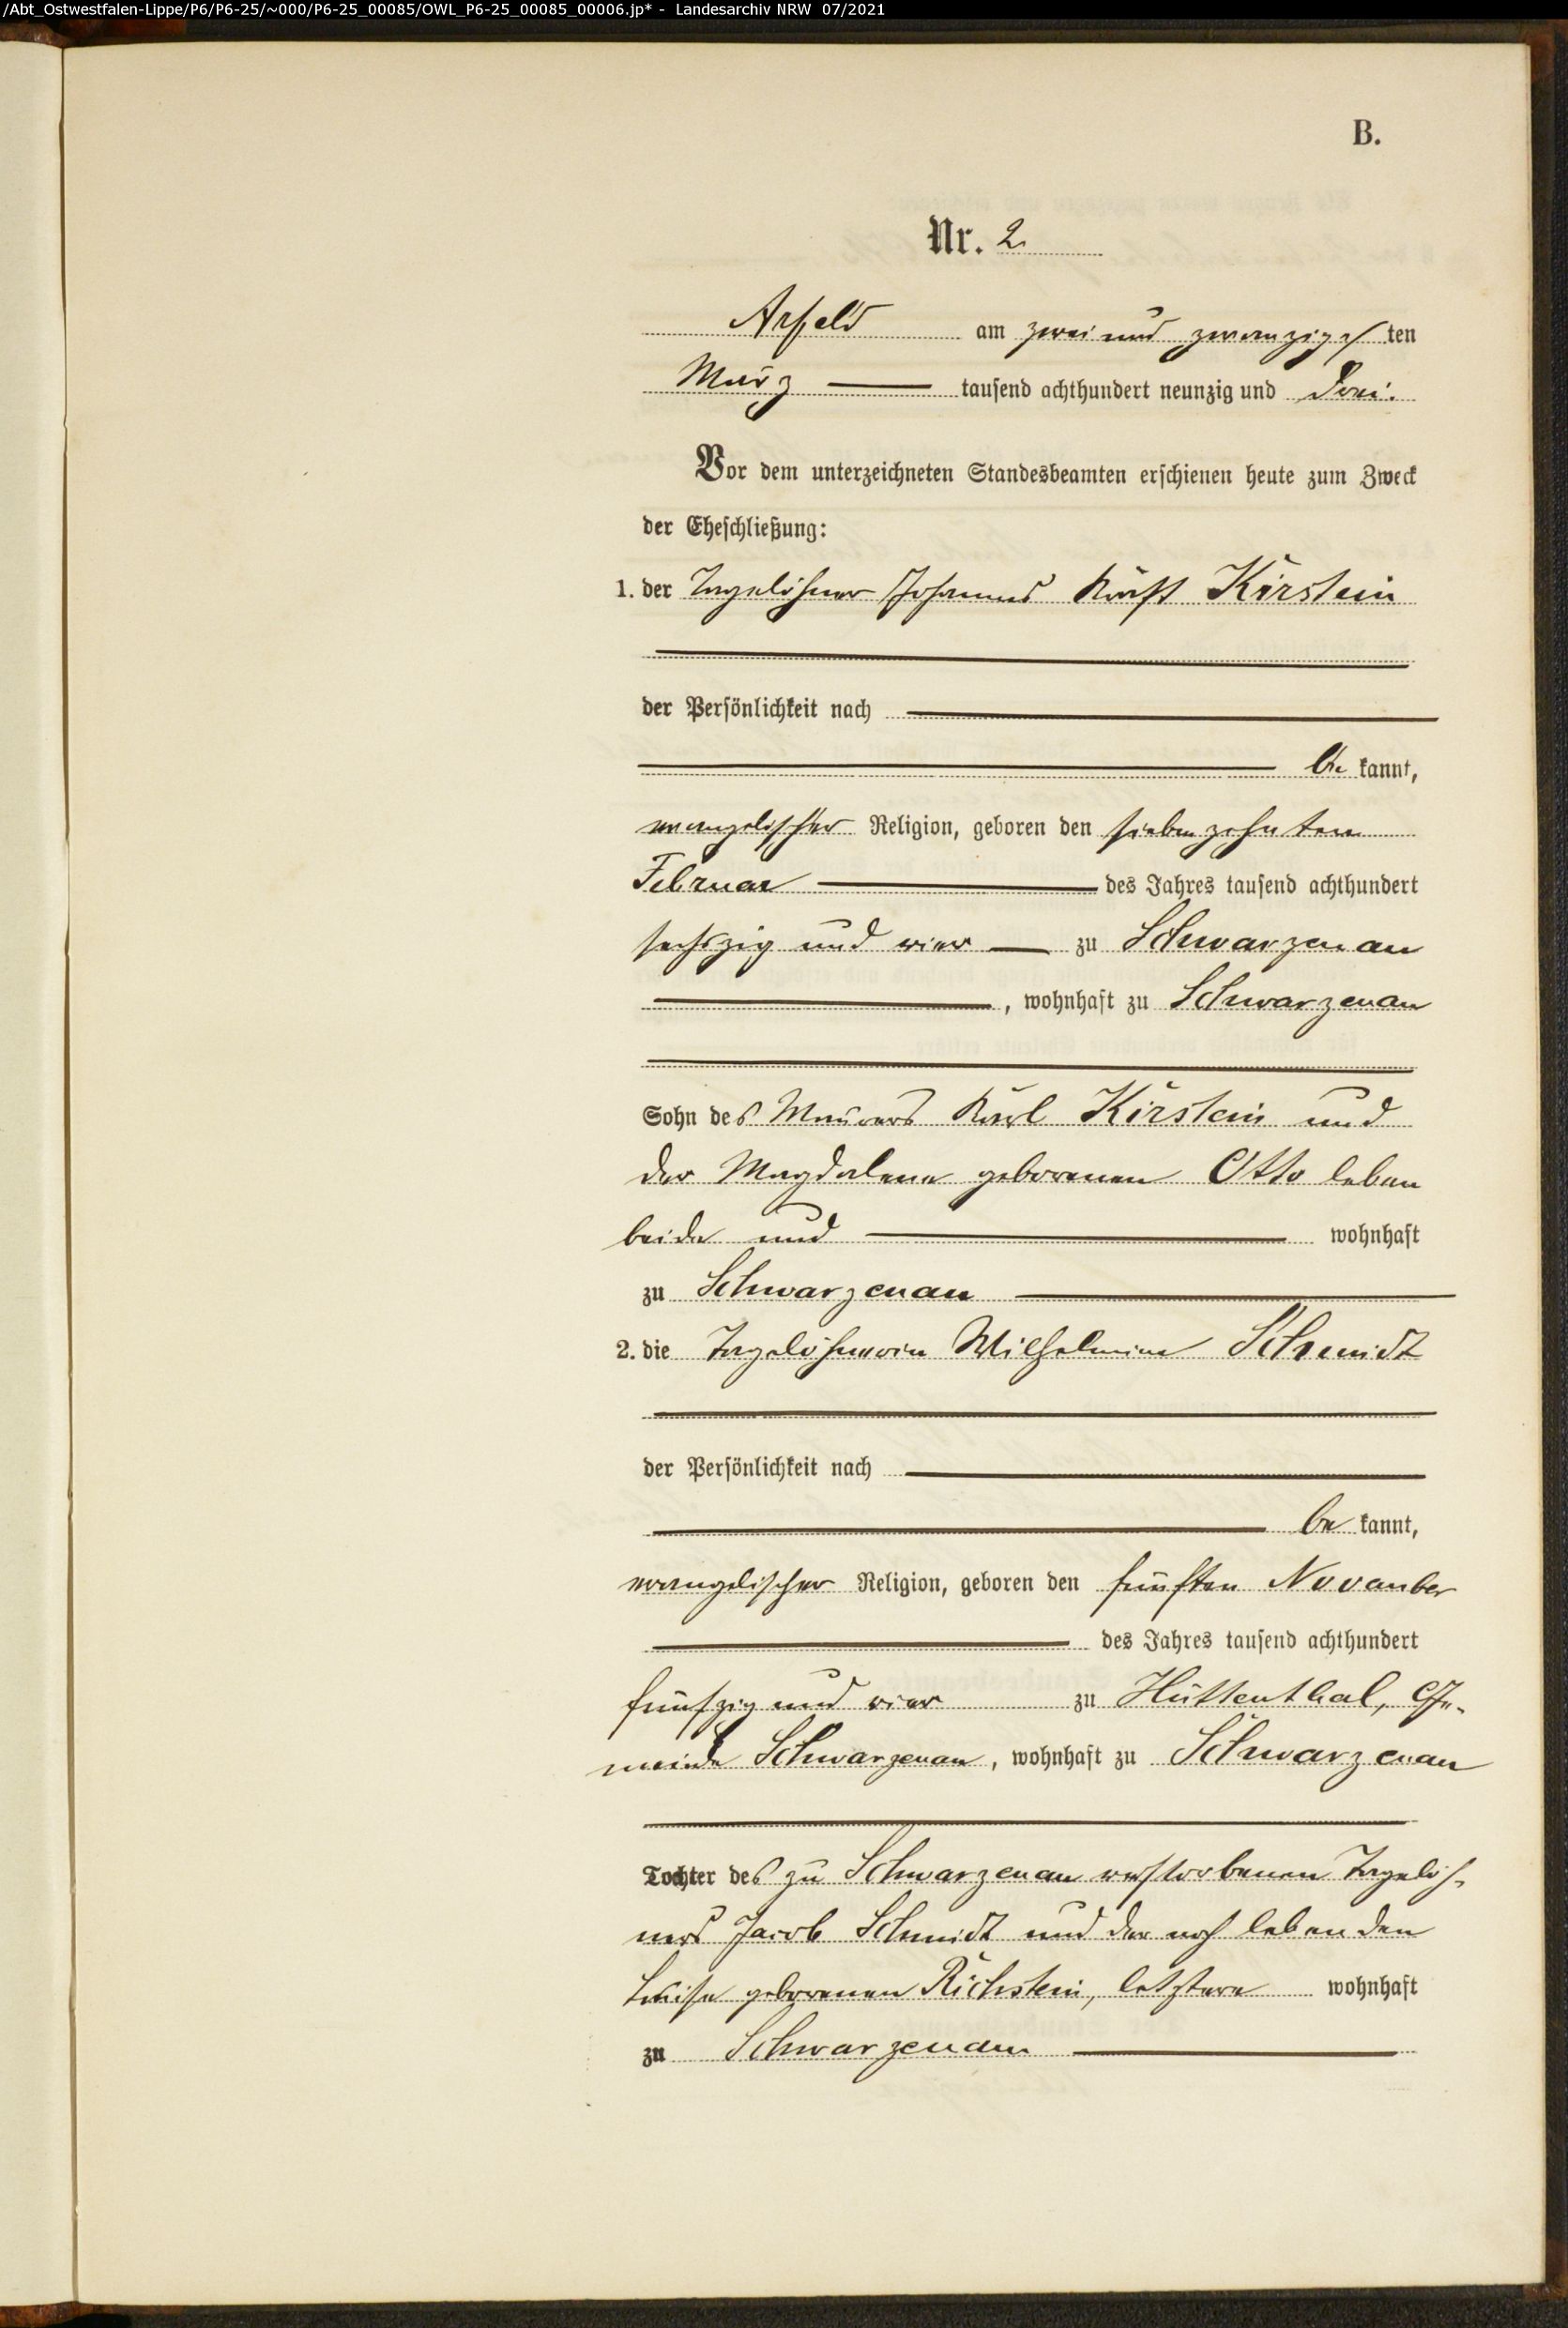 /Abt_Ostwestfalen-Lippe/P6/P6-25/~000/P6-25_00085/OWL_P6-25_00085_00006.jp* - Landesarchiv NRW 07/2021
B.
Nr. 2
Arfeld am zwei und zwanzigsten
März tausend achthundert neunzig und drei.
Vor dem unterzeichneten Standesbeamten erschienen heute zum Zweck
der Eheschließung:
1. der Tagelöhner Johannes Kraft Kirstein
der Persönlichkeit nach
be kannt,
evangelischer Religion, geboren den siebenzehnten
Februar des Jahres tausend achthundert
sechszig und vier zu Schwarzenau
, wohnhaft zu Schwarzenau
Sohn des Maurers Karl Kirstein und
der Magdalena geborenen Otto leben
beide und wohnhaft
zu Schwarzenau
2. die Tagelöhnerin Wilhelmine Schmidt
der Persönlichkeit nach
be kannt,
evangelischer Religion, geboren den fünften November
des Jahres tausend achthundert
fünfzig und vier zu Hüttenthal, Ge-
meinde Schwarzenau, wohnhaft zu Schwarzenau
Tochter des zu Schwarzenau verstorbenen Tagelöh-
ners Jacob Schmidt und der noch lebenden
Luise geborenen Richstein, letztere wohnhaft
zu Schwarzenau